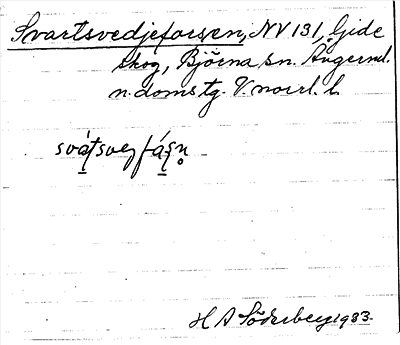 Svartsvedjeforsen, NV 131, Gide
skog, Björna sn. Ångerml.
n. doms tg. V. norrl. l.
H A Söderberg 1933.